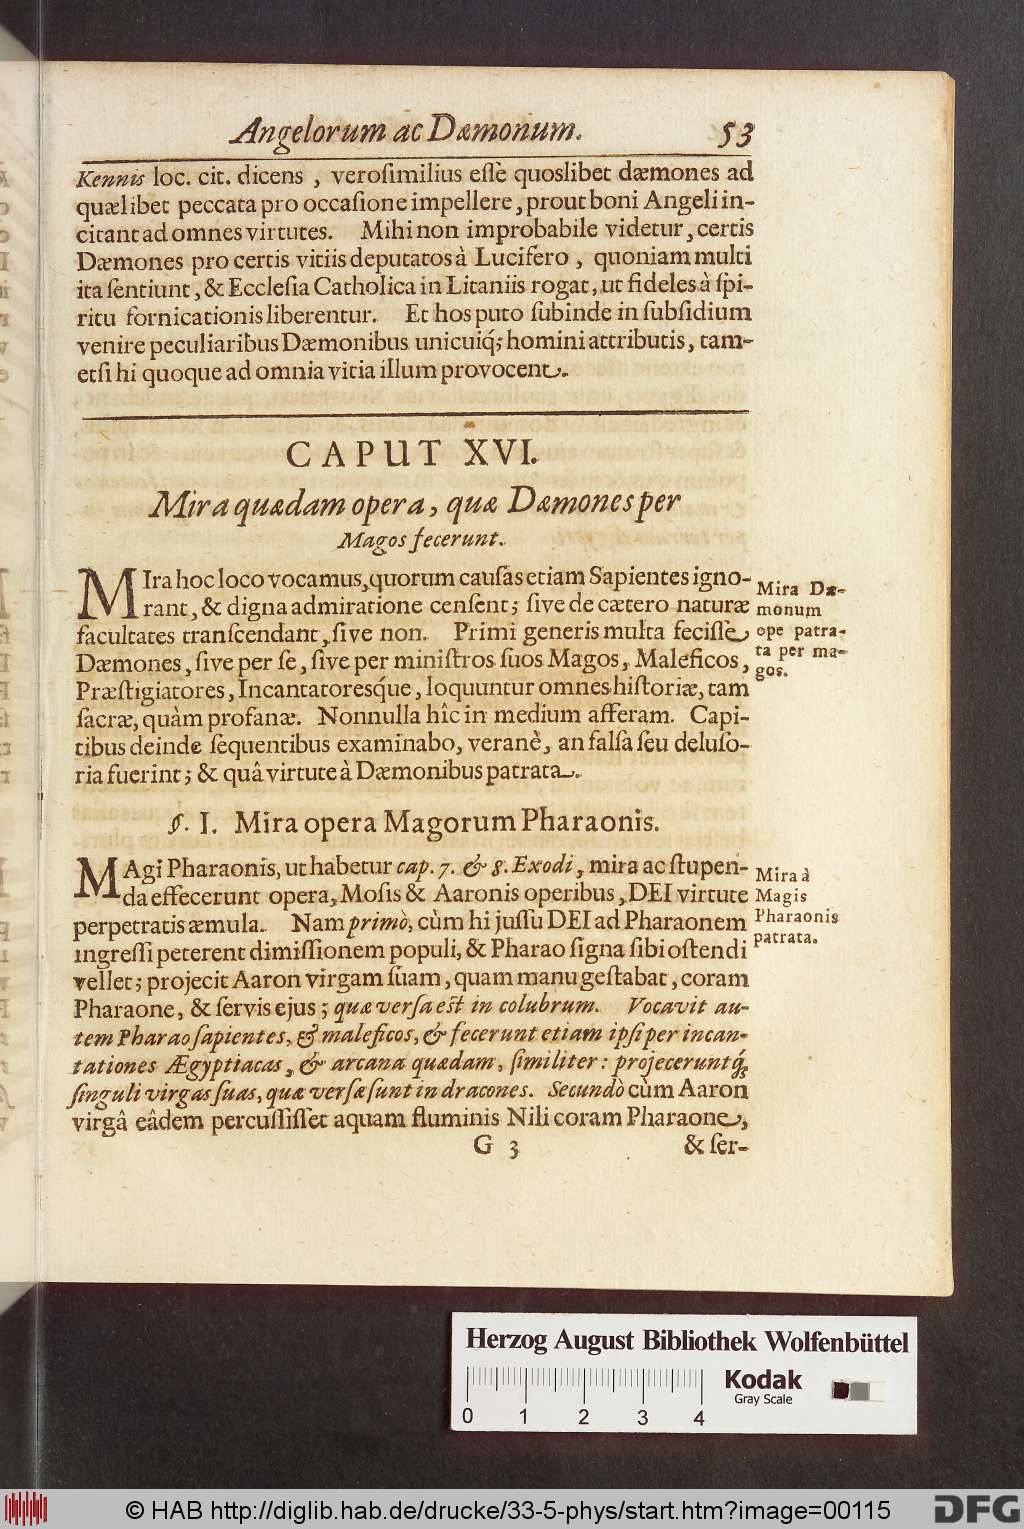 Angelorum ac Dæmonum. 53
Kennis loc. cit. dicens , verosimilius esse quoslibet dæmones ad
quælibet peccata pro occasione impellere, prout boni Angeli in-
citant ad omnes virtutes. Mihi non improbabile videtur, certis
Dæmones pro certis vitiis deputatos à Lucifero , quoniam multi
ita ſentiunt, & Eccleſia Catholica in Litaniis rogat, ut fideles à ſpi-
ritu fornicationis liberentur. Et hos puto ſubinde in ſubſidium
venire peculiaribus Dæmonibus unicuiq́; homini attributis, tam-
etſi hi quoque ad omnia vitia illum provocent.
CAPUT XVI.
Mira quædam opera, quæ Dæmones per
Magos fecerunt.
MIra hoc loco vocamus, quorum cauſas etiam Sapientes igno-
rant, & digna admiratione cenſent; ſive de cætero naturæ
facultates tranſcendant, ſive non. Primi generis multa feciſſe
Dæmones, ſive per ſe, ſive per miniſtros ſuos Magos, Maleficos,
Præſtigiatores, Incantatoresq́ue, loquuntur omnes hiſtoriæ, tam
ſacræ, quàm profanæ. Nonnulla hîc in medium afferam. Capi-
tibus deinde ſequentibus examinabo, veranè, an falſa ſeu deluſo-
ria fuerint; & quâ virtute à Dæmonibus patrata.
Mira Dæ-
monum
ope patra-
ta per ma-
gos.
§. I. Mira opera Magorum Pharaonis.
MAgi Pharaonis, ut habetur cap. 7. & 8. Exodi, mira ac ſtupen-
da effecerunt opera, Moſis & Aaronis operibus, DEI virtute
perpetratis æmula. Nam primò, cùm hi juſſu DEI ad Pharaonem
ingreſſi peterent dimiſſionem populi, & Pharao ſigna ſibi oſtendi
vellet; projecit Aaron virgam ſuam, quam manu geſtabat, coram
Pharaone, & ſervis ejus; quæ verſa eſt in colubrum. Vocavit au-
tem Pharao ſapientes, & maleficos, & fecerunt etiam ipſi per incan-
tationes Ægyptiacas, & arcana quædam, ſimiliter: projeceruntq́;
ſinguli virgas ſuas, quæ verſæ ſunt in dracones. Secundò cùm Aaron
virgâ eâdem percuſſiſſet aquam fluminis Nili coram Pharaone,
Mira à
Magis
Pharaonis
patrata.
G 3 & ſer-
Herzog August Bibliothek Wolfenbüttel
Kodak
Gray Scale
0 1 2 3 4
© HAB http://diglib.hab.de/drucke/33-5-phys/start.htm?image=00115
DFG